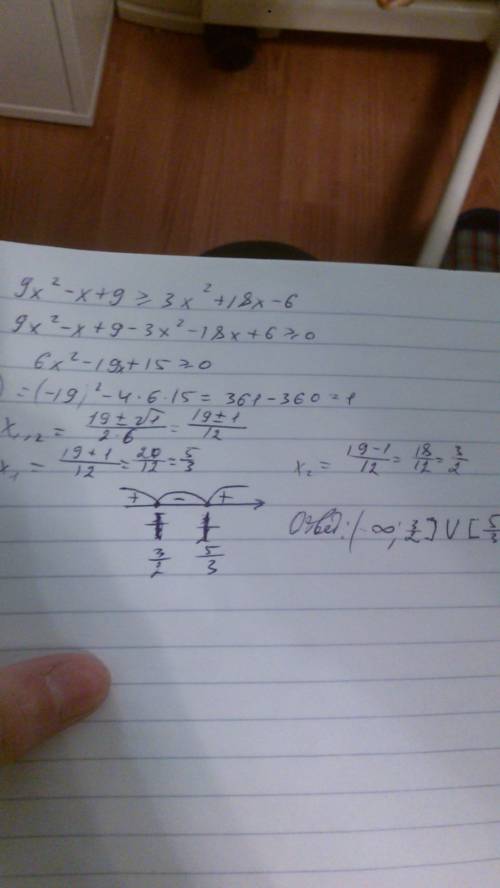 9x² - x + 9 ≥ 3x² + 18x - 6
9x² - x + 9 - 3x² - 18x + 6 ≥ 0
6x² - 19x + 15 ≥ 0
) = (-19)² - 4·6·15 = 361 - 360 = 1
x₁,₂ = (19 ± √1)/(2·6) = (19 ± 1)/12
x₁ = (19 + 1)/12 = 20/12 = 5/3
x₂ = (19 - 1)/12 = 18/12 = 3/2
+ - +
3/2 5/3
Ответ: (-∞; 3/2] ∪ [5/3